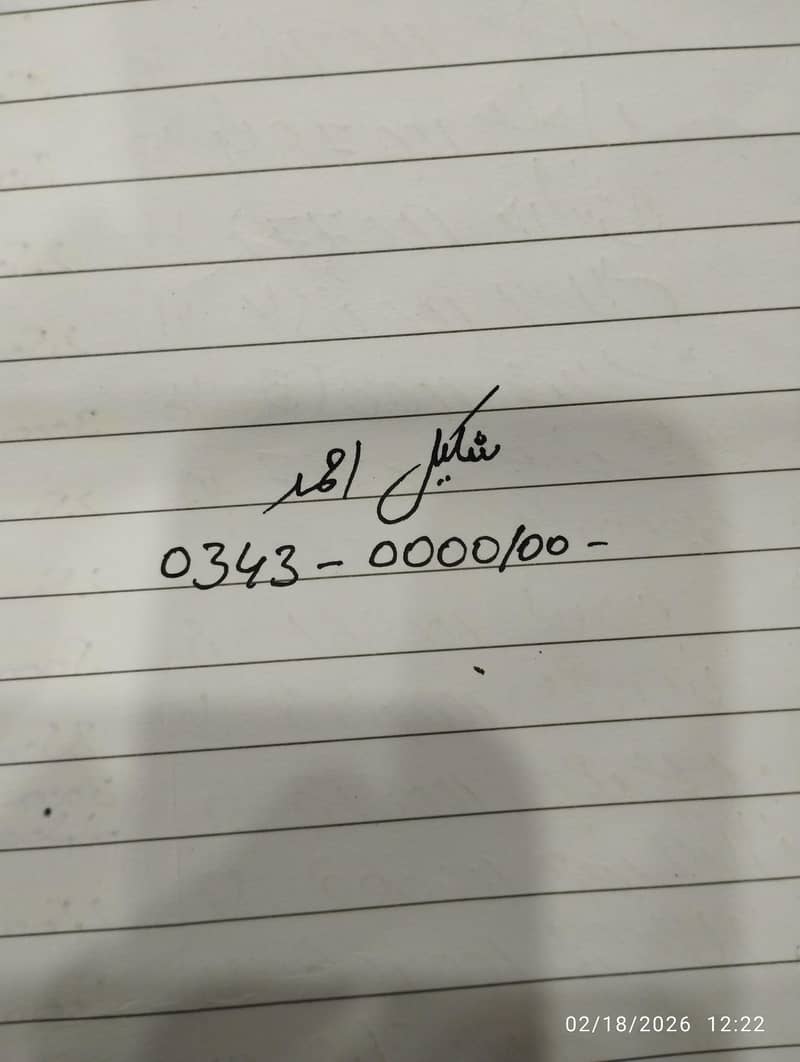 شکیل احمد
0343 - 0000100 -
02/18/2026 12:22